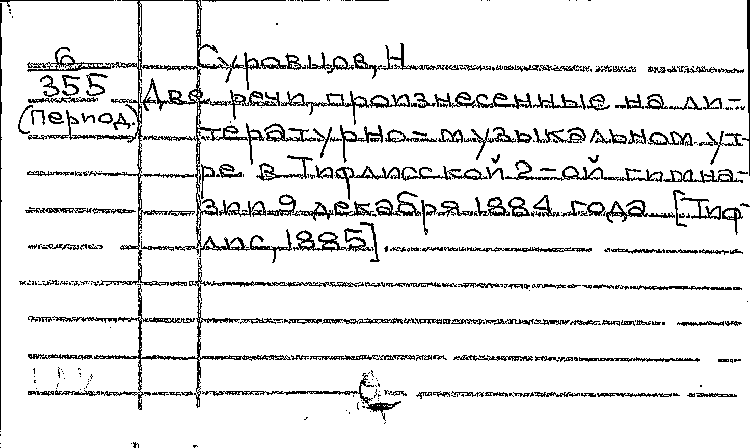 6
355
(Период.)
Суровцов, Н
Две речи, произнесенные на ли-
тературно-музыкальном ут-
ре в Тифлисской 2-ой гимна-
зии 9 декабря 1884 года. [Тиф-
лис, 1885].